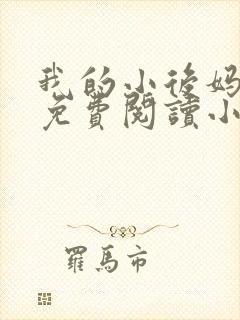 我的小後媽
免費閱讀小
羅馬市